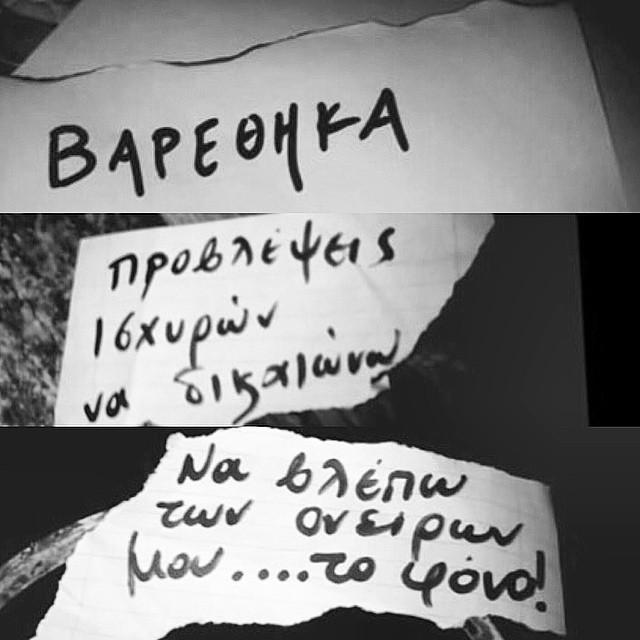 ΒΑΡΕΘΗΚΑ
προβλέψεις
ισχυρών
να δικαιώνω
Να βλέπω
των ονείρων
μου....το φόνο!